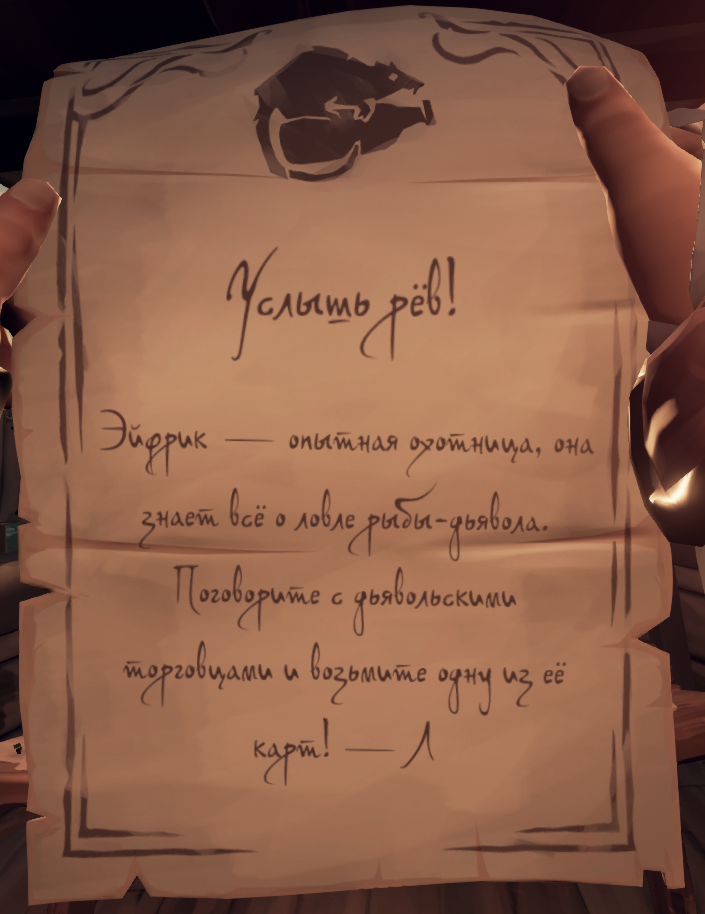 Услышь рёв!
Эйфрик — опытная охотница, она
знает всё о ловле рыбы-дьявола.
Поговорите с дьявольскими
торговцами и возьмите одну из её
карт! — Л